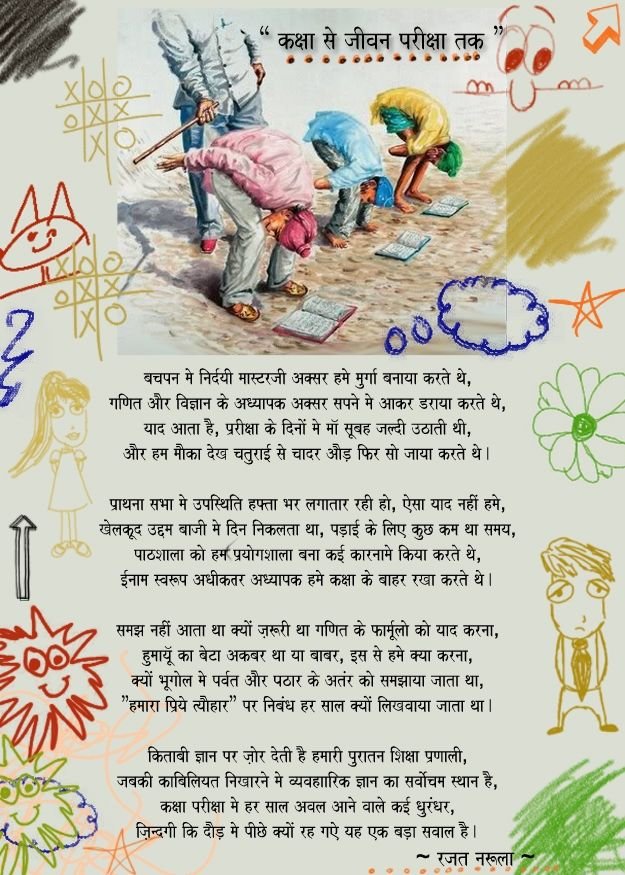 “ कक्षा से जीवन परीक्षा तक ”
बचपन मे निर्दयी मास्टरजी अक्सर हमे मुर्गा बनाया करते थे,
गणित और विज्ञान के अध्यापक अक्सर सपने मे आकर डराया करते थे,
याद आता है, प्ररीक्षा के दिनों मे मॉ सूबह जल्दी उठाती थी,
और हम मौका देख चतुराई से चादर औड़ फिर सो जाया करते थे।
प्राथना सभा मे उपस्थिति हफ्ता भर लगातार रही हो, ऐसा याद नहीं हमे,
खेलकूद उद्दम बाजी मे दिन निकलता था, पड़ाई के लिए कुछ कम था समय,
पाठशाला को हम प्रयोगशाला बना कई कारनामे किया करते थे,
ईनाम स्वरूप अधीकतर अध्यापक हमे कक्षा के बाहर रखा करते थे।
समझ नहीं आता था क्यों ज़रूरी था गणित के फार्मूलो को याद करना,
हुमायूँ का बेटा अकबर था या बाबर, इस से हमे क्या करना,
क्यों भूगोल मे पर्वत और पठार के अतंर को समझाया जाता था,
”हमारा प्रिये त्यौहार” पर निबंध हर साल क्यों लिखवाया जाता था।
किताबी ज्ञान पर ज़ोर देती है हमारी पुरातन शिक्षा प्रणाली,
जबकी काबिलियत निखारने मे व्यवहाारिक ज्ञान का सर्वोचम स्थान है,
कक्षा परीक्षा मे हर साल अवल आने वाले कई धुरंधर,
ज़िन्दगी कि दौड़ मे पीछे क्यों रह गऐ यह एक बड़ा सवाल है।
~ रजत नरूला ~